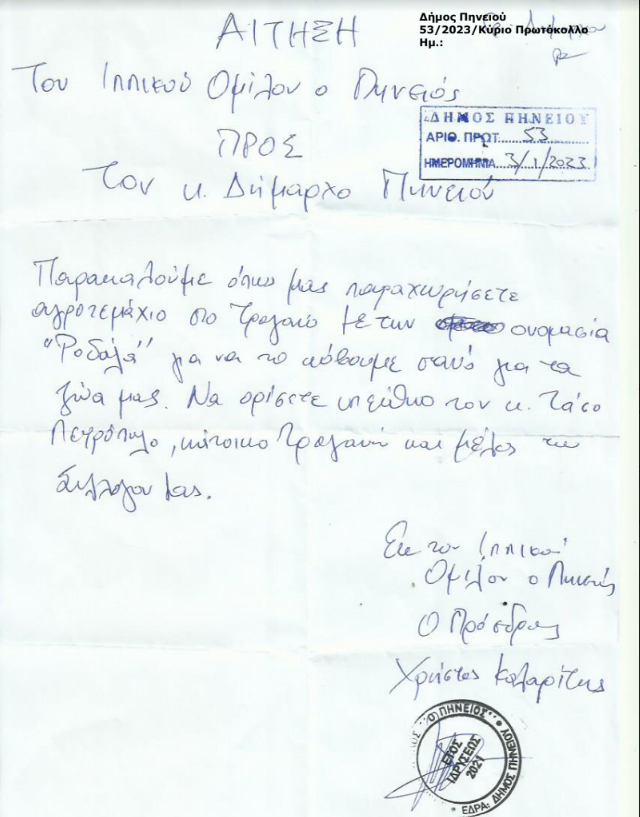 Δήμος Πηνειού
53/2023/Κύριο Πρωτόκολλο
Ημ.:
ΑΙΤΗΣΗ
Του Ιππικού Ομίλου ο Πηνειός
ΔΗΜΟΣ ΠΗΝΕΙΟΥ
ΑΡΙΘ. ΠΡΩΤ. 53
ΗΜΕΡΟΜΗΝΙΑ 3/1/2023
ΠΡΟΣ
Τον κ. Δήμαρχο Πηνειού
Παρακαλούμε όπως μας παραχωρήσετε
αγροτεμάχιο στο Τραγανό με την ονομασία
"Ροδαλά" για να το κόβουμε σανό για τα
ζώα μας. Να ορίσετε υπεύθυνο τον κ. Τάσο
Πετρόπουλο, κάτοικο Τραγανού και μέλος του
Συλλόγου μας.
Εκ του Ιππικού
Ομίλου ο Πηνειός
Ο Πρόεδρος
Χρήστος Καλαρίτης
"Ο ΠΗΝΕΙΟΣ"
ΕΤΟΣ
ΙΔΡΥΣΕΩΣ
2021
ΕΔΡΑ: ΔΗΜΟΣ ΠΗΝΕΙΟΥ